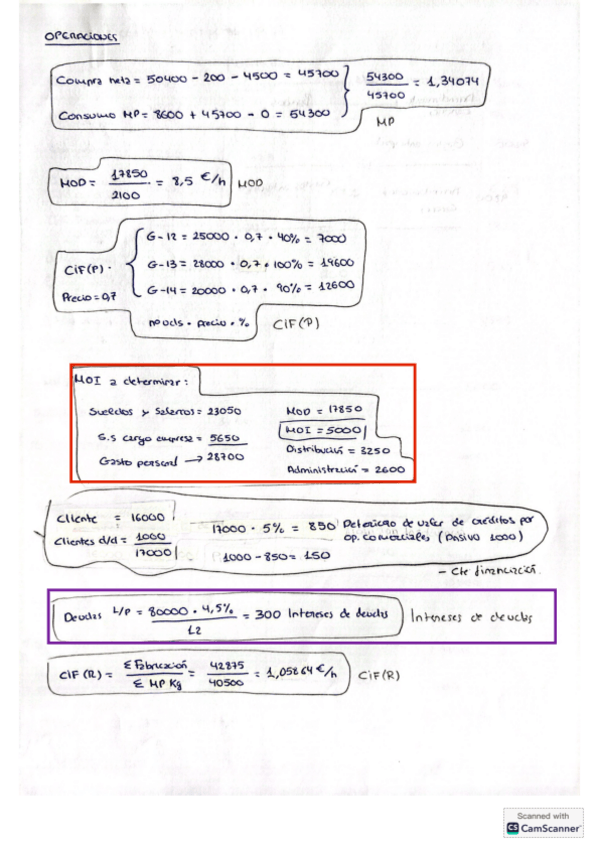 OPERACIONES
Compra neta = 50400 - 200 - 4500 = 45700
Consumo MP = 8600 + 45700 - 0 = 54300
54300
45700
= 1,34074
MP
MOD = 17850
2100
= 8,5 €/h
MOD
CIF(P).
Precio = 0,7
G-12 = 25000 · 0,7 · 40% = 7000
G-13 = 28000 · 0,7 · 100% = 19600
G-14 = 20000 · 0,7 · 90% = 12600
nº uds · precio · %
CIF(P)
MOI a determinar:
Sueldos y Salarios = 23050
S.S cargo empresa = 5650
Gasto personal → 28700
MOD = 17850
MOI = 5000
Distribución = 3250
Administración = 2600
Cliente = 16000
Clientes d/d = 1000
17000
17000 · 5% = 850
1000 - 850 = 150
Deterioro de valor de créditos por
op. comerciales (Pasivo 1000)
- Cte financiación.
Deudas L/P = 80000 · 4,5%
12
= 300 Intereses de deudas
Intereses de deudas
CIF (R) = Σ Fabricación
Σ MP Kg
= 42875
40500
= 1,05864 €/h
CIF(R)
Scanned with
CS CamScanner